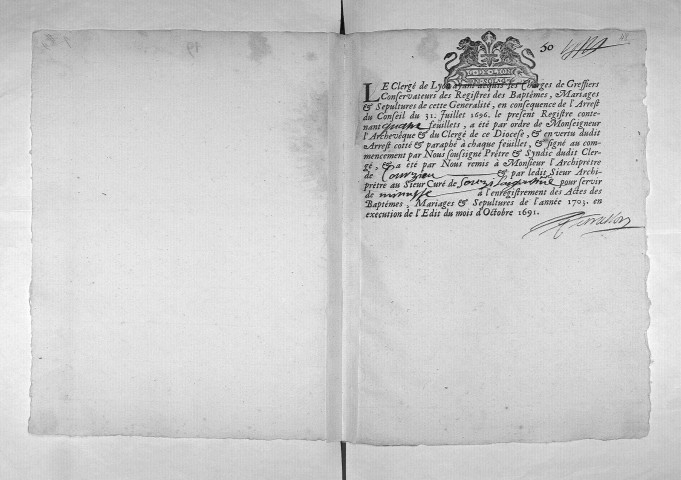 50
LE Clergé de Lyon ayant acquis les Charges de Greffiers
Conservateurs des Registres des Baptêmes, Mariages
& Sepultures de cette Generalité, en consequence de l'Arrest
du Conseil du 31. Juillet 1696. le present Registre conte-
nant quatre feuillets, a été par ordre de Monseigneur
l'Archevêque & du Clergé de ce Diocese, & en vertu dudit
Arrest cotté & paraphé à chaque feuillet, & signé au com-
mencement par Nous soussigné Prêtre & Syndic dudit Cler-
gé, & a été par Nous remis à Monsieur l'Archiprêtre
de Courzieu & par ledit Sieur Archi-
prêtre au Sieur Curé de pour servir
de minutte à l'enregistrement des Actes des
Baptêmes, Mariages & Sepultures de l'année 1703. en
execution de l'Edit du mois d'Octobre 1691.